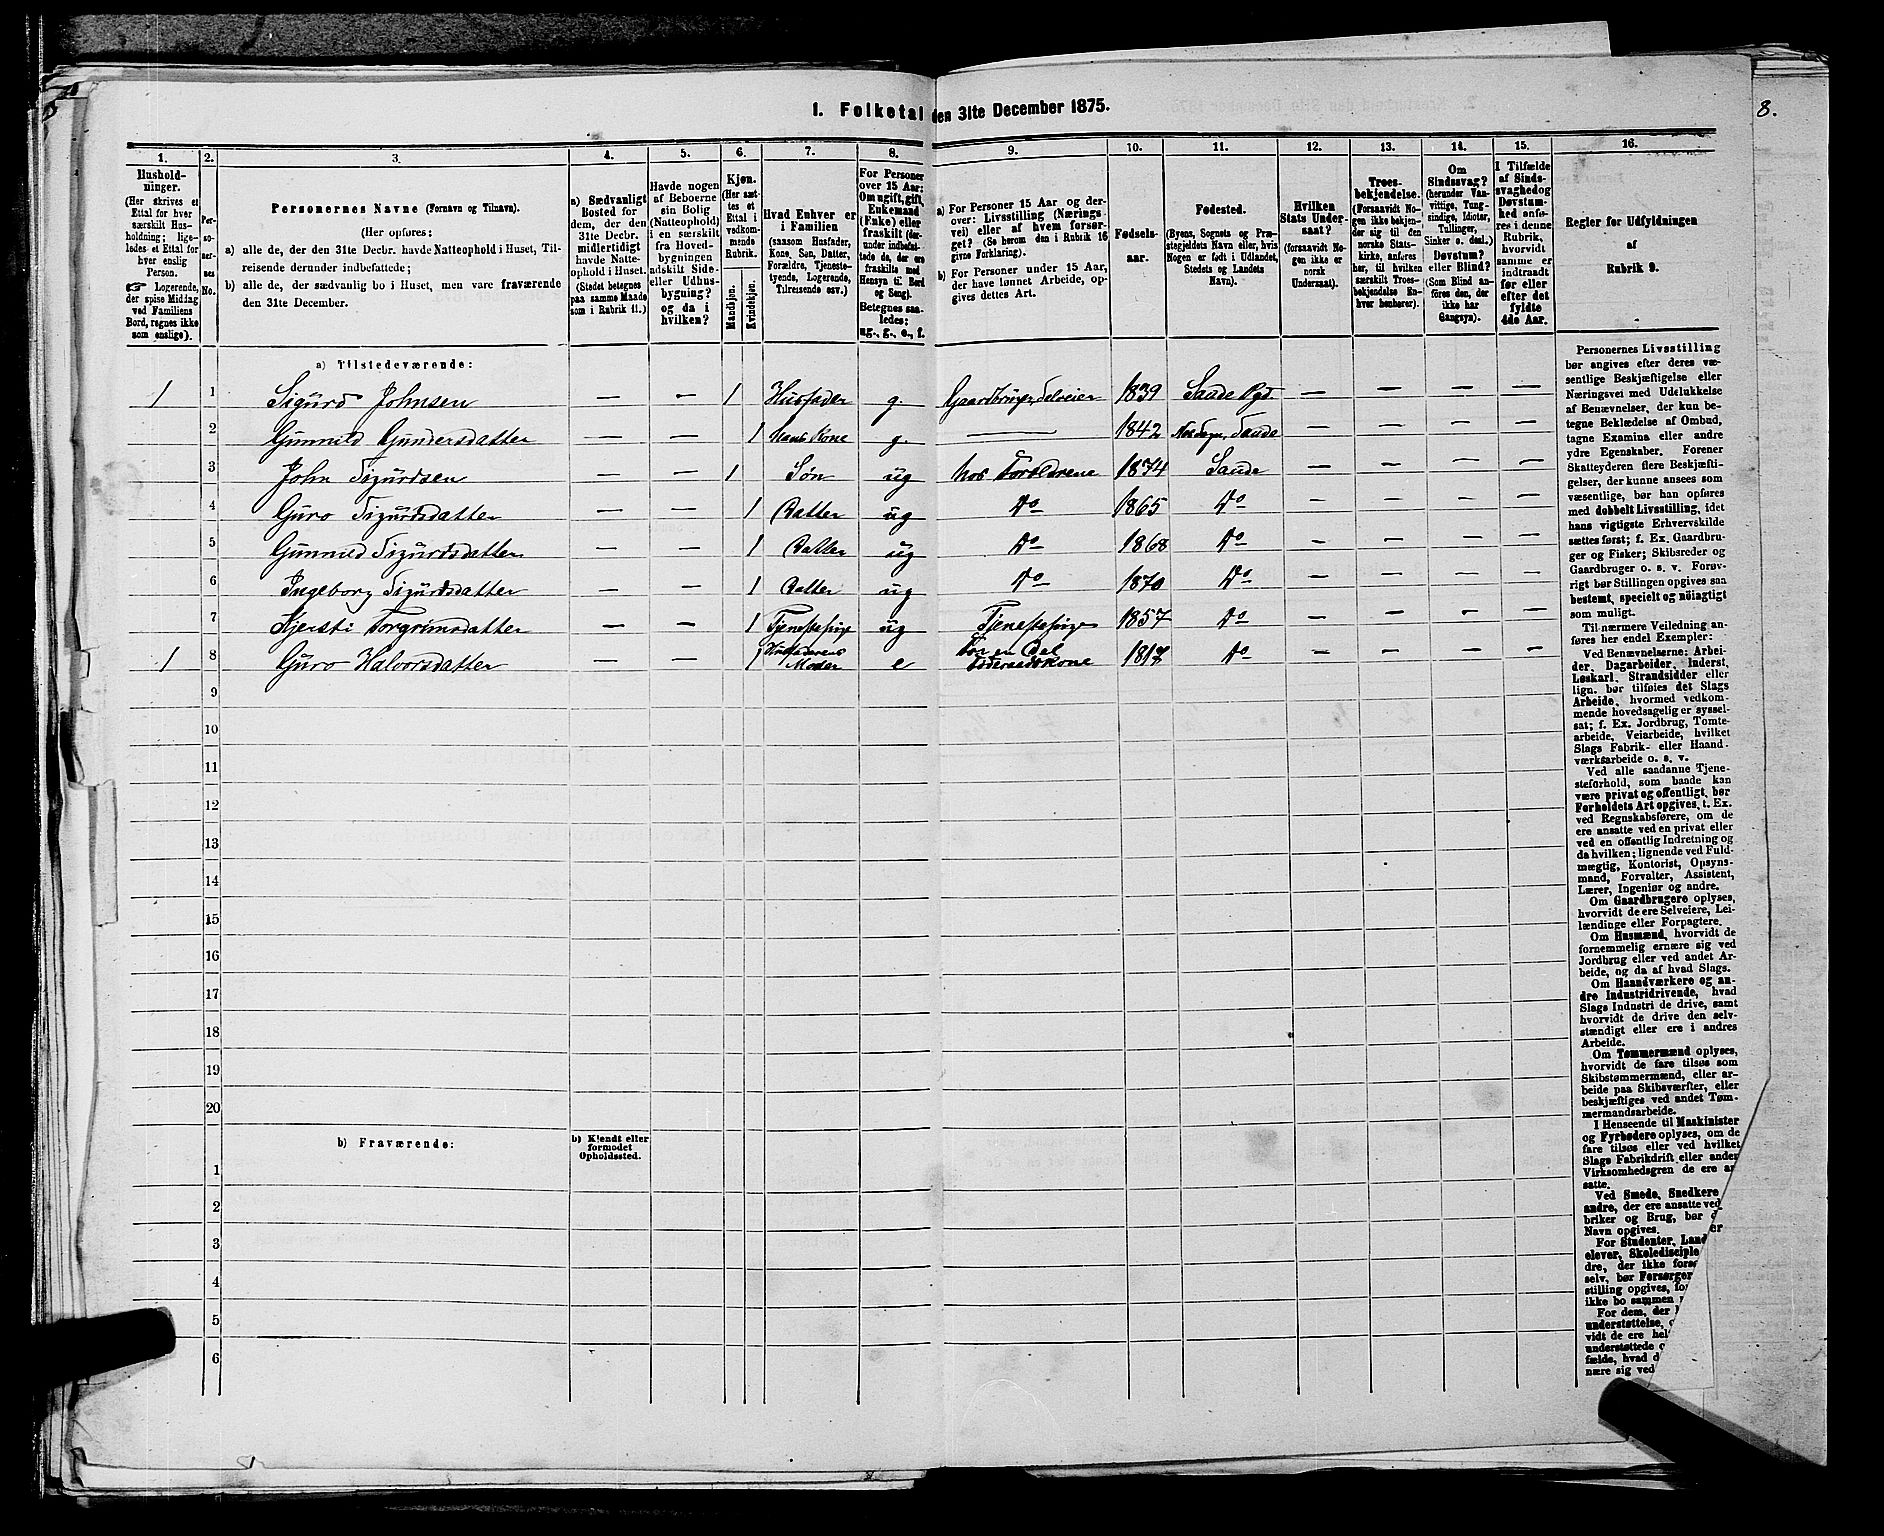 8.
1. Folketal den 31te December 1875.
1. 2. 3. 4. 5. 6. 7. 8. 9. 10. 11. 12. 13. 14. 15. 16.
Hushold-
ninger.
(Her skrives et
Ettal for hver
særskilt Hus-
holdning; lige-
ledes et Ettal for
hver enslig
Person.
☞ Logerende,
der spise Middag
ved Familiens
Bord, regnes ikke
som enslige).
Per-
so-
ner-
nes
No.
Personernes Navne (Fornavn og Tilnavn).
(Her opføres;
a) alle de, der den 31te Decbr. havde Natteophold i Huset, Til-
reisende derunder indbefattede;
b) alle de, der sædvanlig bo i Huset, men vare fraværende
den 31te December.
a) Sædvanligt
Bosted for
dem, der den
31te Decbr.
midlertidigt
havde Natte-
ophold i Huset.
(Stedet betegnes
paa samme Maade
som i Rubrik 11.)
Havde nogen
af Beboerne
sin Bolig
(Natteophold)
i en særskilt
fra Hoved-
bygningen
adskilt Side-
eller Udhus-
bygning?
og da i
hvilken?
Kjøn.
(Her sæt-
tes et
Ettal i
vedkom-
mende
Rubrik.
Mandkjøn.
Kvindekjøn.
Hvad Enhver er
i Familien
(saasom Husfader,
Kone, Søn, Datter,
Forældre, Tjeneste-
tyende, Logerende,
Tilreisende osv.)
For Personer
over 15 Aar:
Om ugift, gift,
Enkemand
(Enke) eller
fraskilt (der-
under indbefat-
tede de, der ere
fraskilte med
Hensyn til Bord
og Seng).
Betegnes saa-
ledes:
ug., g., e., f.
a) For Personer 15 Aar og der-
over: Livsstilling (Nærings-
vei) eller af hvem forsør-
get? (Se herom den i Rubrik 16
givne Forklaring).
b) For Personer under 15 Aar,
der have lønnet Arbeide, op-
gives dettes Art.
Fødsels-
aar.
Fødested.
(Byens, Sognets og Præ-
stegjeldets Navn eller, hvis
Nogen er født i Udlandet,
Stedets og Landets
Navn).
Hvilken
Stats Under-
saat?
(forsaavidt No-
gen ikke er
norsk
Undersaat).
Troes-
bekjendelse.
(Forsaavidt No-
gen ikke bekjen-
der sig til den
norske Stats-
kirke, anføres
her, til hvilken
særskilt Troes-
bekjendelse En-
hver henhører).
Om
Sindssvag?
(herunder Van-
vittige, Tung-
sindige, Idioter,
Tullinger,
Sinker o. desl.)
Døvstum?
eller Blind?
(Som Blind an-
føres den, der
ikke har
Gangsyn).
I Tilfælde
af Sinds-
svaghed og
Døvstum-
hed anfø-
res i denne
Rubrik,
hvorvidt
samme er
indtraadt
før eller
efter det
fyldte
4de Aar.
Regler for Udfyldningen
af
Rubrik 9.
a) Tilstedeværende:
1 1 Sigurd Johnsen — — 1 Husfader g. Gaardbruger, Selveier 1839 Saude Pgd. — — — —
2 Gunnild Gundersdatter — — 1 Hans Kone g. — 1842 Saude — — — —
3 John Sigurdsen — — 1 Søn ug hos Forældrene 1874 Saude — — — —
4 Guro Sigurdsdatter — — 1 Datter ug Do 1865 Do — — — —
5 Gunnild Sigurdsdatter — — 1 Datter ug Do 1868 Do — — — —
6 Ingeborg Sigurdsdatter — — 1 Datter ug Do 1870 Do — — — —
7 Kjersti Torgrimsdatter — — 1 Tjenestepige ug Tjenestepige 1857 Do — — —
1 8 Guro Halvorsdatter — — 1 Husfaderens Moder e For en Del Føderaadskone 1817 Do — — — —
9
10
11
12
13
14
15
16
17
18
19
20
b) Fraværende:
b) Kjendt eller
formodet
Opholdssted.
1
2
3
4
5
6
Personernes Livsstilling
bør angives efter deres væ-
sentlige Beskjæftigelse eller
Næringsvei med Udelukkelse
af Benævnelser, der kun be-
tegne Beklædelse af Ombud,
tagne Examina eller andre
ydre Egenskaber. Forener
Skatteyderen flere Beskjæfti-
gelser, der kunne ansees som
væsentlige, bør han opføres
med dobbelt Livsstilling, idet
hans vigtigste Erhvervskilde
sættes først; f. Ex. Gaardbru-
ger og Fisker; Skibsreder og
Gaardbruger o. s. v. Forøv-
rigt bør Stillingen opgives saa
bestemt, specielt og nöiagtigt
som muligt.
Til nærmere Veiledning an-
føres her endel Exempler:
Ved Benævnelserne: Arbei-
der, Dagarbeider, Inderst,
Løskarl, Strandsidder eller
lign. bør tilføies det Slags
Arbeide, hvormed vedkom-
mende hovedsagelig er syssel-
sat; f. Ex. Jordbrug, Tomte-
arbeide, Veiarbeide, hvilket
Slags Fabrik- eller Haand-
værksarbeide o. s. v.
Ved alle saadanne Tjene-
steforhold, som baade kan
være privat og offentligt, bør
Forholdets Art opgives, t. Ex.
ved Regnskabsførere, om de
ere ansatte ved en privat eller
ved en offentlig Indretning og
da hvilken; lignende ved Fuld-
mægtig, Kontorist, Opsyns-
mand, Forvalter, Assistent,
Lærer, Ingeniør og andre.
Om Gaardbrugere oplyses,
hvorvidt de ere Selveiere, Lei-
lændinge eller Forpagtere.
Om Husmænd, hvorvidt de
fornemmelig ernære sig ved
Jordbrug eller ved andet Ar-
beide, og da af hvad Slags.
Om Haandværkere og an-
dre Industridrivende, hvad
Slags Industri de drive, samt
hvorvidt de drive den selv-
stændigt eller ere i andres
Arbeide.
Om Tømmermænd oplyses,
hvorvidt de fare tilsøs som
Skibstømmermænd, eller ar-
beide paa Skibsværfter, eller
beskjæftiges ved andet Tøm-
mermandsarbeide.
I Henseende til Maskinister
og Fyrbødere oplyses, om de
fare tilsøs eller ved hvilket
Slags Fabrikdrift eller anden
Virksomhedsgren de ere an
satte.
Ved Smede, Snedkere
andre, der ere ansatte ved
briker og Brug, bør
Navn opgives.
For Studenter, Land
elever, Skoledisciple
dre, der ikke forse
selv, bør Forsørger
stilling opgives, for
ikke bo sammen
For dem, der
understøttelse,
vidt de ere hel
understøttede
fælde, hvad d
nære sig ved